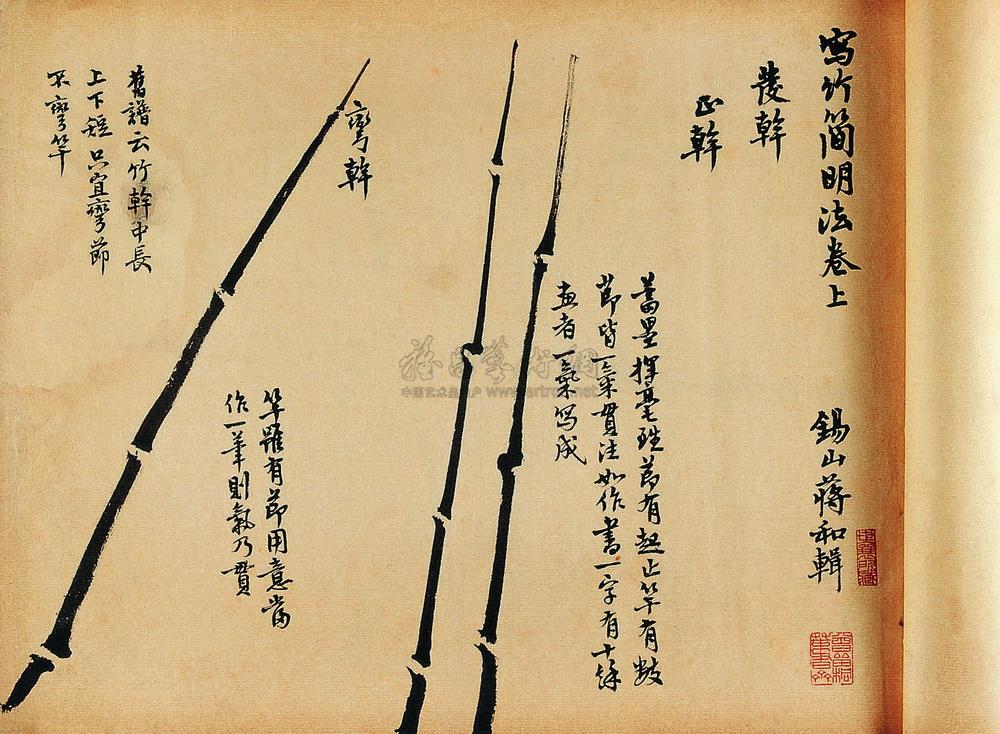 寫竹簡明法卷上
錫山蔣和輯
發幹
正幹
蓄墨揮毫節有起止竿有數
節皆一氣貫注如作書一字有十餘
畫者一氣寫成
彎幹
竿雖有節用意當
作一筆則氣乃貫
舊譜云竹幹中長
上下短只宜彎節
不彎竿
www.artron.net